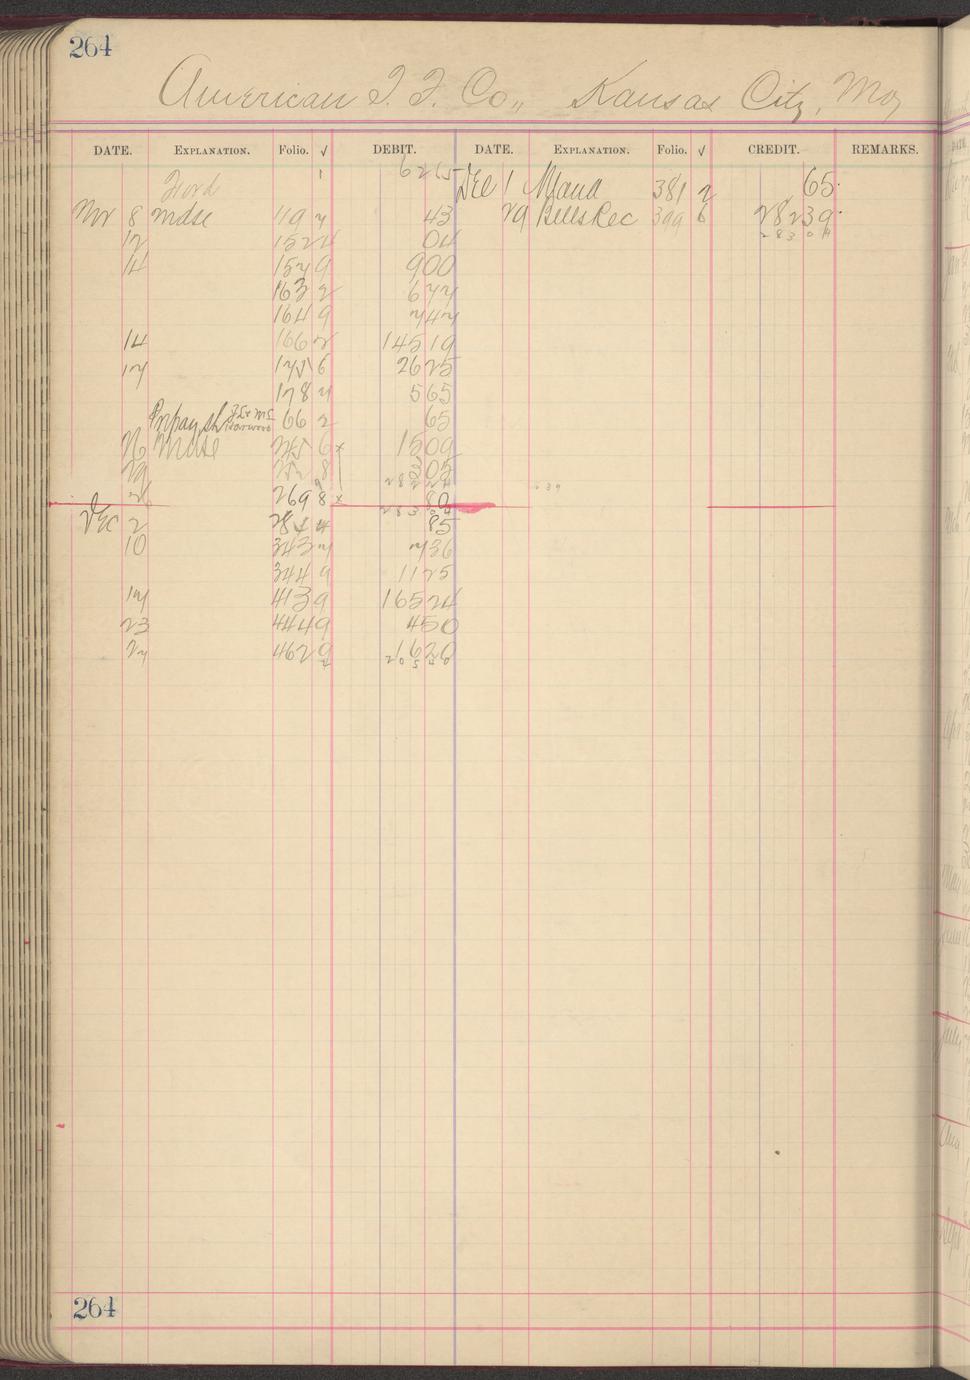 264
American T. F. Co., Kansas City, Mo
DATE. EXPLANATION. Folio. √ DEBIT. DATE. EXPLANATION. Folio. √ CREDIT. REMARKS.
Ford 1 6265 Dec 1 Maud 381 2 65
Nov 8 Mdse 119 7 43 29 Bills Rec 399 6 28239
12 152 4 04 28304
14 157 9 900
163 2 677
164 9 747
14 166 2 14519
17 175 6 2625
178 7 565
66 2 65
26 Mdse 245 6 x 1509
29 8 305
269 8 x 80
28304
Dec 2 284 4 85
10 343 7 736
344 9 1125
17 413 9 16524
23 444 9 450
27 462 9 1620
20540
264